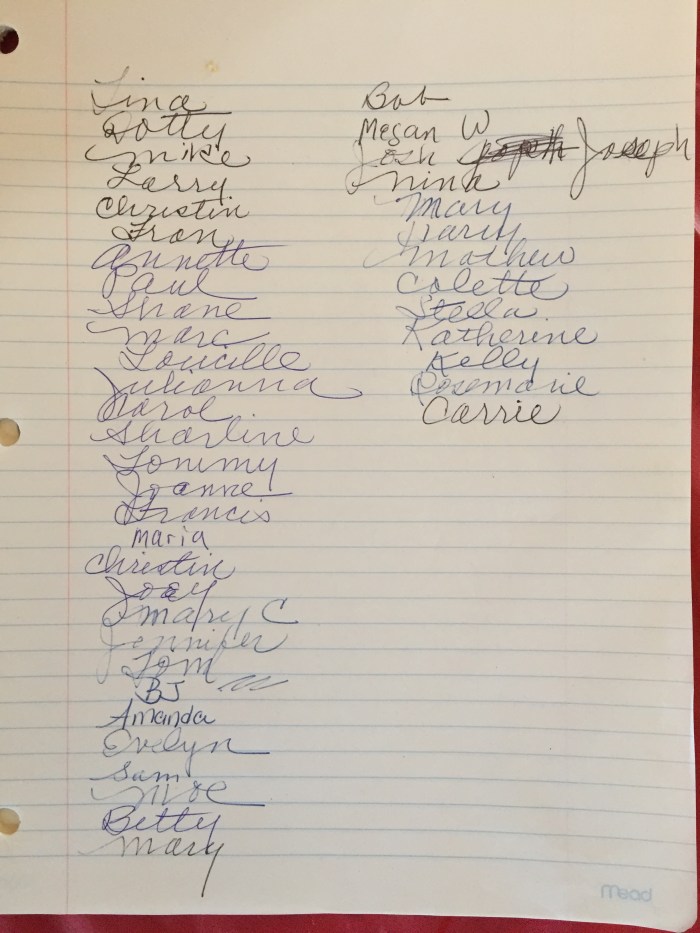 Tina
Dotty
Mike
Larry
Christin
Fran
Annette
Paul
Shane
Marc
Loucille
Julianna
Karol
Sharline
Tommy
Joanne
Francis
maria
Christin
Joey
Mary C
Jennifer
Tom
BJ
Amanda
Evelyn
Sam
Moe
Betty
Mary
Bob
Megan W
Josh Joseph
Nina
Mary
Harry
Mathew
Colette
Stella
Katherine
Kelly
Rosemarie
Carrie
Mead